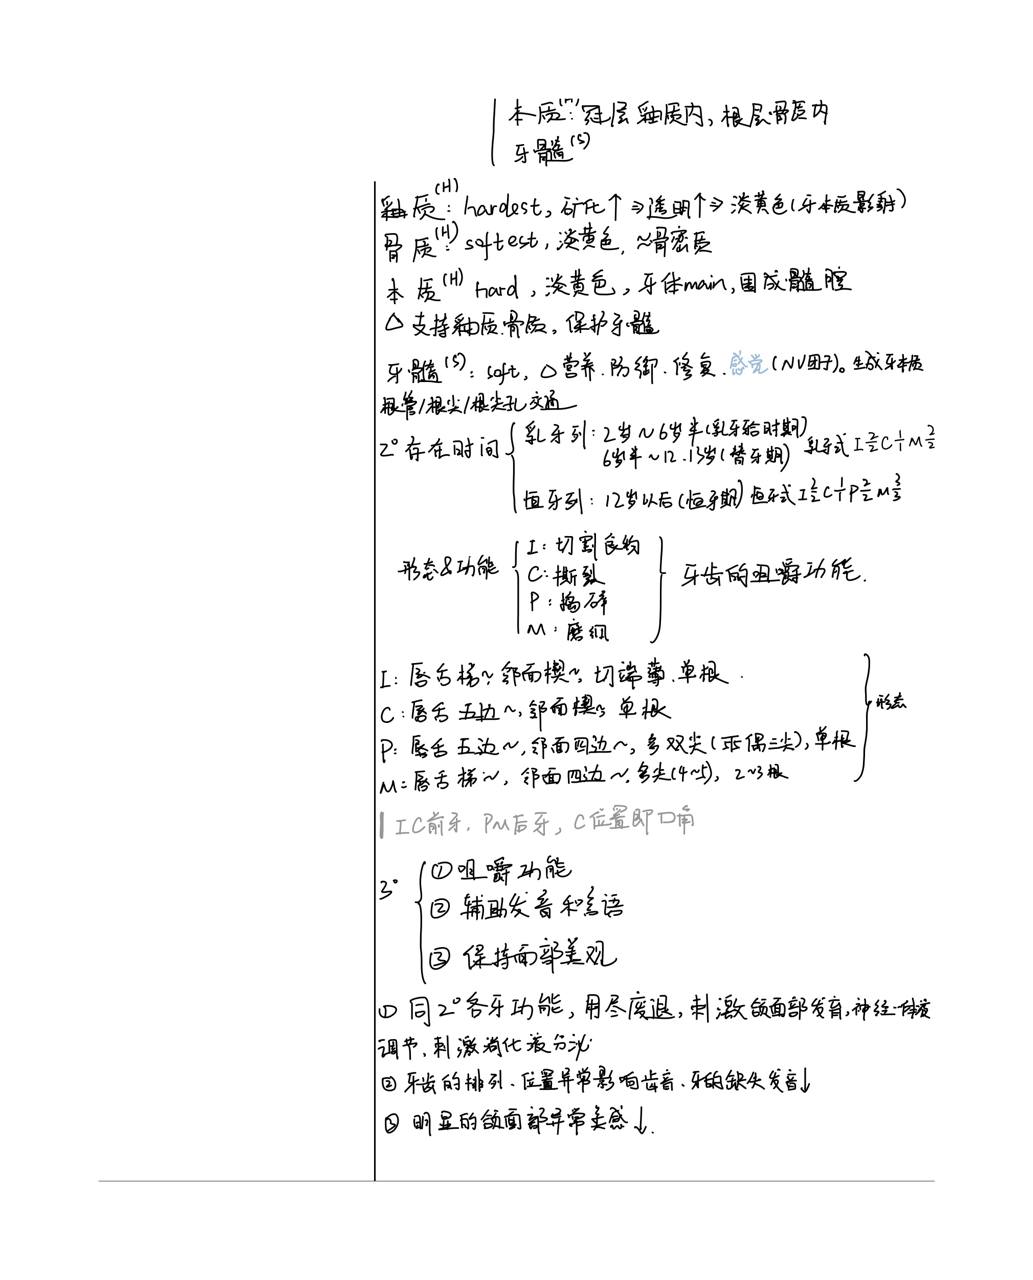 本质(H):冠层釉质内,根层骨质内
牙髓(S)
釉质(H): hardest, 矿化↑⇒透明↑⇒淡黄色(牙本质影射)
骨质(H): softest, 淡黄色, ≈骨密质
本质(H) hard, 淡黄色, 牙体main, 围成髓腔
△支持釉质.骨质, 保护牙髓
牙髓(S): soft, △营养.防御.修复.感觉(NV因子)。生成牙本质
根管/根尖/根尖孔交通
2°存在时间
乳牙列: 2岁~6岁半(乳牙 时期)
6岁半~12.13岁(替牙期) 乳牙式 I 2/2 C 1/1 M 2/2
恒牙列: 12岁以后(恒牙期) 恒牙式 I 2/2 C 1/1 P 2/2 M 3/3
形态&功能
I: 切割食物
C: 撕裂
P: 捣碎
M: 磨细
牙齿的咀嚼功能.
I: 唇舌梯~, 邻面楔~, 切端薄.单根.
C: 唇舌五边~, 邻面楔~, 单根
P: 唇舌五边~, 邻面四边~, 多双尖(偶三尖), 单根
M: 唇舌梯~, 邻面四边~, 多尖(4~5), 2~3根
形态
IC前牙. PM后牙, C位置即口角
3°
①咀嚼功能
②辅助发音和言语
③保持面部美观
①同2°各牙功能, 用尽废退, 刺激颌面部发育, 神经-体液
调节, 刺激消化液分泌
②牙齿的排列.位置异常影响齿音.牙的缺失发音↓
③明显的颌面部异常美感↓.